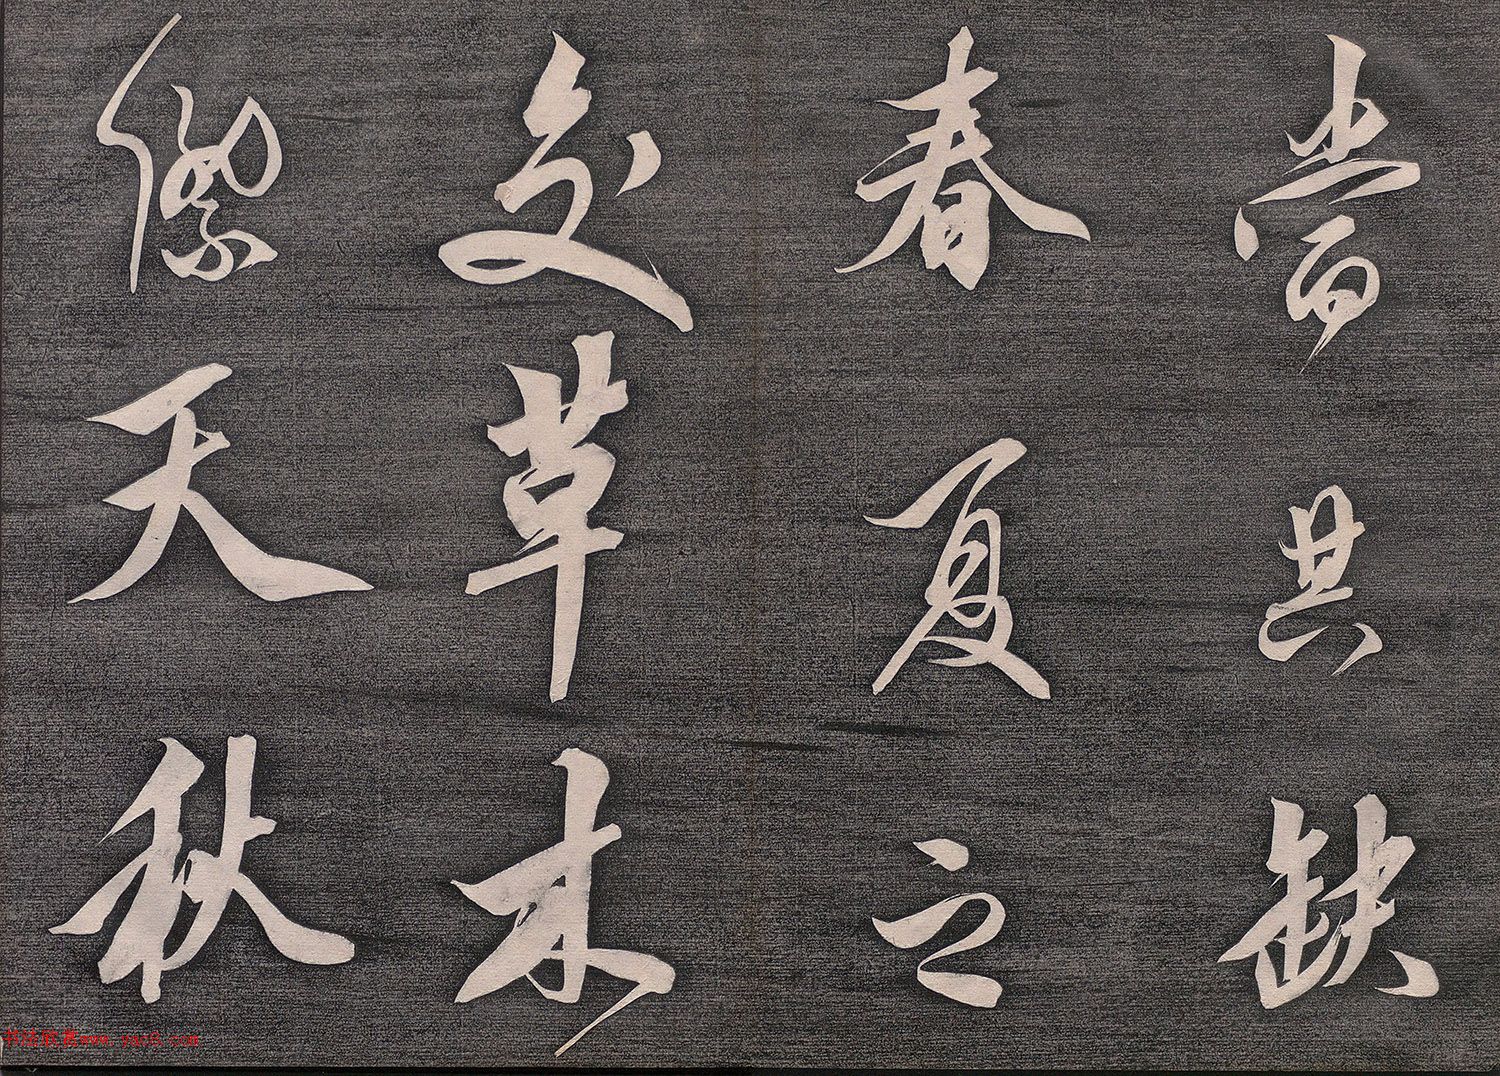 當其缺
春夏之
交草木
際天秋
书法欣赏www.yac8.com